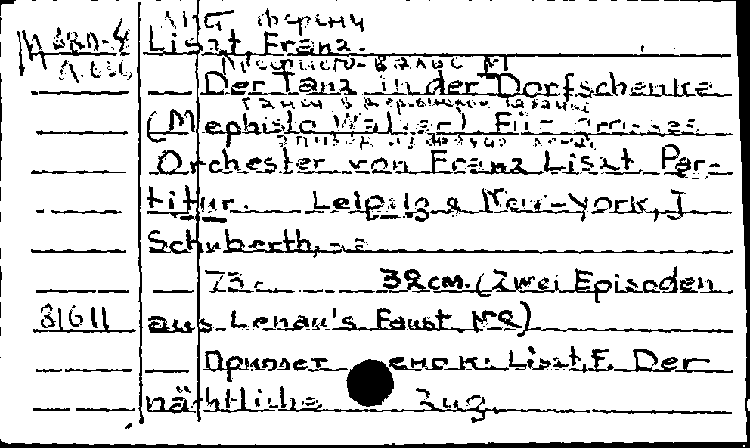 Лист Ференц
М
Liszt, Franz.
Мефисто-вальс №1
Der Tanz in der Dorfschenke
Танец в деревенском кабачке
(Mephisto Walzer) Für grosses
Эпизод из
Orchester von Franz Liszt. Par-
titur. Leipzig & New-york, J
Schuberth,
73 с. 32см. (Zwei Episoden
81611 aus Lenau's Faust №2)
Приплет ено к: Liszt, F. Der
nächtliche Zug.